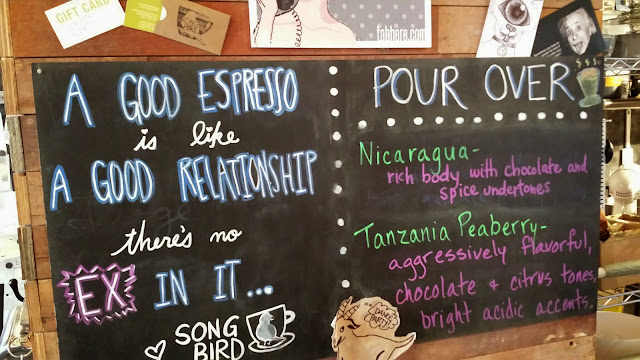 GIFT CARD
fabbare.com
A GOOD ESPRESSO
is like
A GOOD RELATIONSHIP
there's no
EX IN IT...
SONG
BIRD
POUR OVER
$$$
Nicaragua-
rich body with chocolate and
spice undertones
Tanzania Peaberry-
aggressively flavorful,
chocolate & citrus tones,
bright acidic accents.